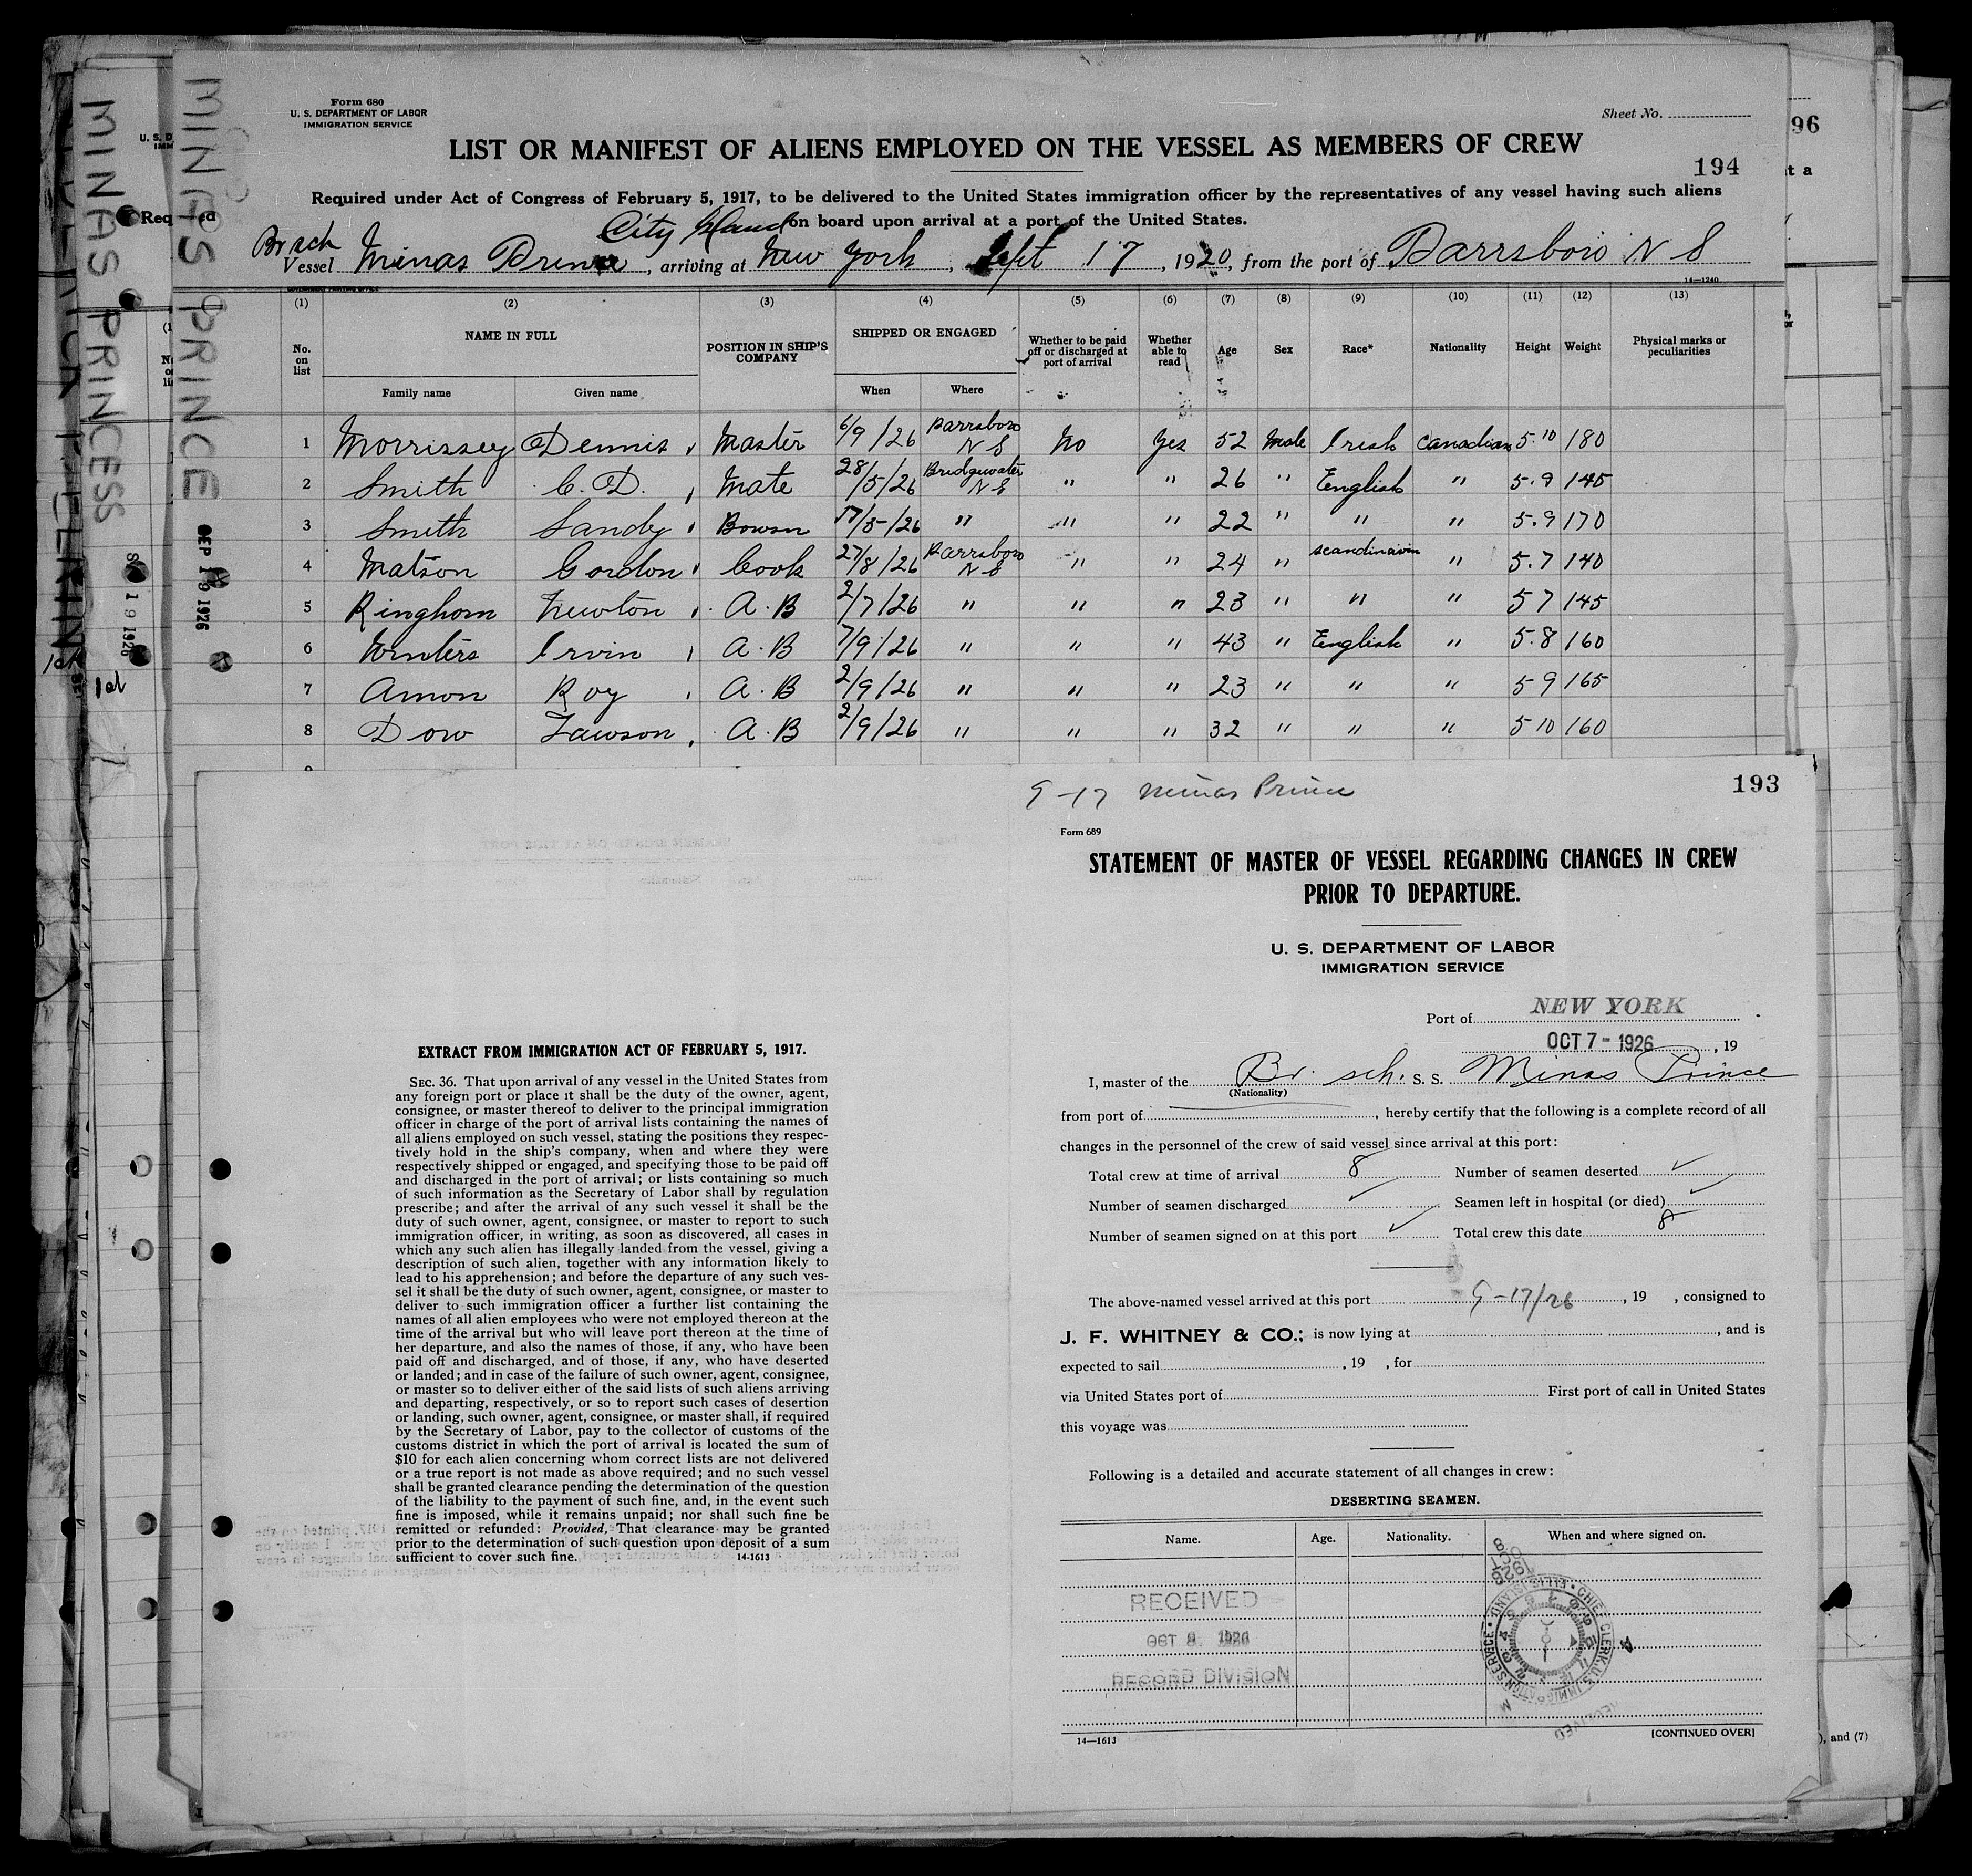 Form 680
U. S. DEPARTMENT OF LABOR
IMMIGRATION SERVICE
Sheet No.
LIST OR MANIFEST OF ALIENS EMPLOYED ON THE VESSEL AS MEMBERS OF CREW
194
Required under Act of Congress of February 5, 1917, to be delivered to the United States immigration officer by the representatives of any vessel having such aliens
on board upon arrival at a port of the United States.
City Island
Br sch
Vessel Minas Prince, arriving at New York, Sept 17, 1920, from the port of Parrsboro N S
14—1240
(1) (2) (3) (4) (5) (6) (7) (8) (9) (10) (11) (12) (13)
No. on list NAME IN FULL POSITION IN SHIP'S COMPANY SHIPPED OR ENGAGED Whether to be paid off or discharged at port of arrival Whether able to read Age Sex Race* Nationality Height Weight Physical marks or peculiarities
Family name Given name When Where
1 Morrissey Dennis Master 6/9/26 Parrsboro N S No Yes 52 Male Irish Canadian 5.10 180
2 Smith C. D. Mate 28/5/26 Bridgewater N S " " 26 " English " 5.9 145
3 Smith Sandy Bowsn /5/26 " " " 22 " " " 5.9 170
4 Matson Gordon Cook 27/8/26 Parrsboro N S " " 24 " scandinavin " 5.7 140
5 Kinghorn Newton A.B 2/7/26 " " " 23 " " " 5 7 145
6 Winters Irvin A.B 7/9/26 " " " 43 " English " 5.8 160
7 Amon Roy A.B 2/9/26 " " " 23 " " " 5 9 165
8 Dow Lawson A.B 2/9/26 " " " 32 " " " 5 10 160
MINAS PRINCE
SEP 19 1926
MINAS PRINCESS
19 1926
1st
96
193
9-17 Minas Prince
Form 689
STATEMENT OF MASTER OF VESSEL REGARDING CHANGES IN CREW
PRIOR TO DEPARTURE.
U. S. DEPARTMENT OF LABOR
IMMIGRATION SERVICE
Port of NEW YORK
OCT 7 - 1926, 19
I, master of the Br. sch. S. S. Minas Prince
(Nationality)
from port of , hereby certify that the following is a complete record of all
changes in the personnel of the crew of said vessel since arrival at this port:
Total crew at time of arrival 8 Number of seamen deserted ✓
Number of seamen discharged ✓ Seamen left in hospital (or died) ✓
Number of seamen signed on at this port ✓ Total crew this date 8
The above-named vessel arrived at this port 9-17/26, 19 , consigned to
J. F. WHITNEY & CO.; is now lying at , and is
expected to sail , 19 , for
via United States port of First port of call in United States
this voyage was
Following is a detailed and accurate statement of all changes in crew:
DESERTING SEAMEN.
Name. Age. Nationality. When and where signed on.
RECEIVED
OCT 8 1926
RECORD DIVISION
CHIEF CLERK, U.S. IMMIGRATION SERVICE • ELLIS ISLAND
RECEIVED
14—1613
[CONTINUED OVER]
), and (7)
EXTRACT FROM IMMIGRATION ACT OF FEBRUARY 5, 1917.
SEC. 36. That upon arrival of any vessel in the United States from
any foreign port or place it shall be the duty of the owner, agent,
consignee, or master thereof to deliver to the principal immigration
officer in charge of the port of arrival lists containing the names of
all aliens employed on such vessel, stating the positions they respec-
tively hold in the ship's company, when and where they were
respectively shipped or engaged, and specifying those to be paid off
and discharged in the port of arrival; or lists containing so much
of such information as the Secretary of Labor shall by regulation
prescribe; and after the arrival of any such vessel it shall be the
duty of such owner, agent, consignee, or master to report to such
immigration officer, in writing, as soon as discovered, all cases in
which any such alien has illegally landed from the vessel, giving a
description of such alien, together with any information likely to
lead to his apprehension; and before the departure of any such ves-
sel it shall be the duty of such owner, agent, consignee, or master to
deliver to such immigration officer a further list containing the
names of all alien employees who were not employed thereon at the
time of the arrival but who will leave port thereon at the time of
her departure, and also the names of those, if any, who have been
paid off and discharged, and of those, if any, who have deserted
or landed; and in case of the failure of such owner, agent, consignee,
or master so to deliver either of the said lists of such aliens arriving
and departing, respectively, or so to report such cases of desertion
or landing, such owner, agent, consignee, or master shall, if required
by the Secretary of Labor, pay to the collector of customs of the
customs district in which the port of arrival is located the sum of
$10 for each alien concerning whom correct lists are not delivered
or a true report is not made as above required; and no such vessel
shall be granted clearance pending the determination of the question
of the liability to the payment of such fine, and, in the event such
fine is imposed, while it remains unpaid; nor shall such fine be
remitted or refunded: Provided, That clearance may be granted
prior to the determination of such question upon deposit of a sum
sufficient to cover such fine.
14-1613